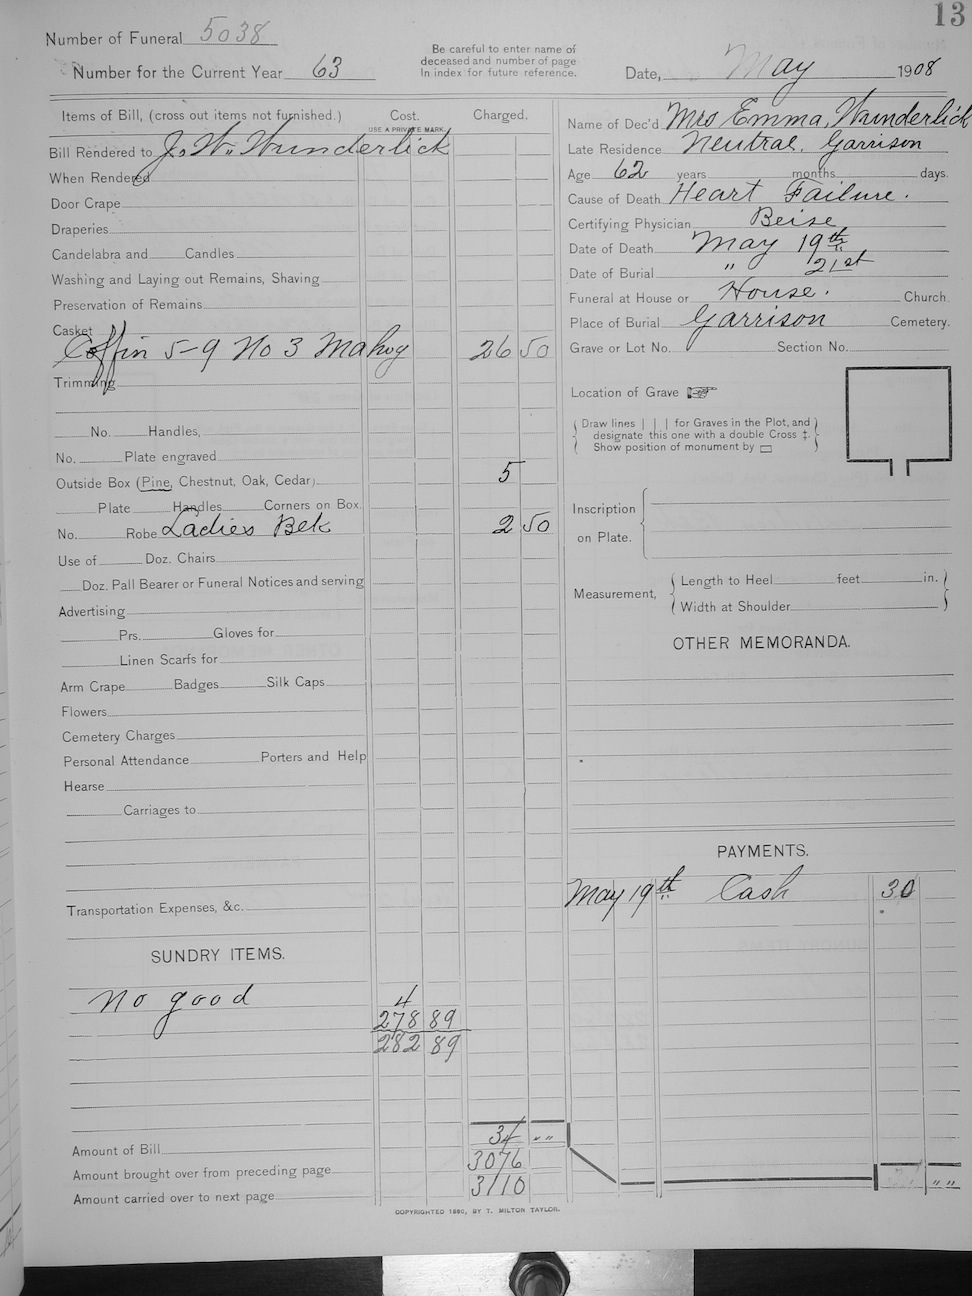 13
Number of Funeral 5038
Number for the Current Year 63
Be careful to enter name of
deceased and number of page
In index for future reference.
Date, May 1908
Items of Bill, (cross out items not furnished.) Cost. Charged.
USE A PRIVATE MARK.
Bill Rendered to J. W. Wunderlick
When Rendered
Door Crape
Draperies
Candelabra and Candles
Washing and Laying out Remains, Shaving
Preservation of Remains
Casket
Coffin 5-9 No 3 Mahog 26 50
Trimming
No. Handles,
No. Plate engraved
Outside Box (Pine, Chestnut, Oak, Cedar) 5
Plate Handles Corners on Box
No. Robe Ladies Belk 2 50
Use of Doz. Chairs
Doz. Pall Bearer or Funeral Notices and serving
Advertising
Prs. Gloves for
Linen Scarfs for
Arm Crape Badges Silk Caps
Flowers
Cemetery Charges
Personal Attendance Porters and Help
Hearse
Carriages to
Transportation Expenses, &c.
SUNDRY ITEMS.
no good 4
278 89
282 89
34 " "
Amount of Bill
3076
Amount brought over from preceding page
3110
Amount carried over to next page
COPYRIGHTED 1890, BY T. MILTON TAYLOR.
Name of Dec'd Mrs Emma, Wunderlick
Late Residence Neutral. Garrison
Age 62 years months days.
Cause of Death Heart Failure.
Certifying Physician Beise
Date of Death May 19th
Date of Burial " 21st
Funeral at House or House. Church
Place of Burial Garrison Cemetery.
Grave or Lot No. Section No.
Location of Grave
Draw lines | | | for Graves in the Plot, and
designate this one with a double Cross ‡.
Show position of monument by ▭
Inscription
on Plate.
Measurement, Length to Heel feet in.
Width at Shoulder
OTHER MEMORANDA.
PAYMENTS.
May 19th Cash 30
" "